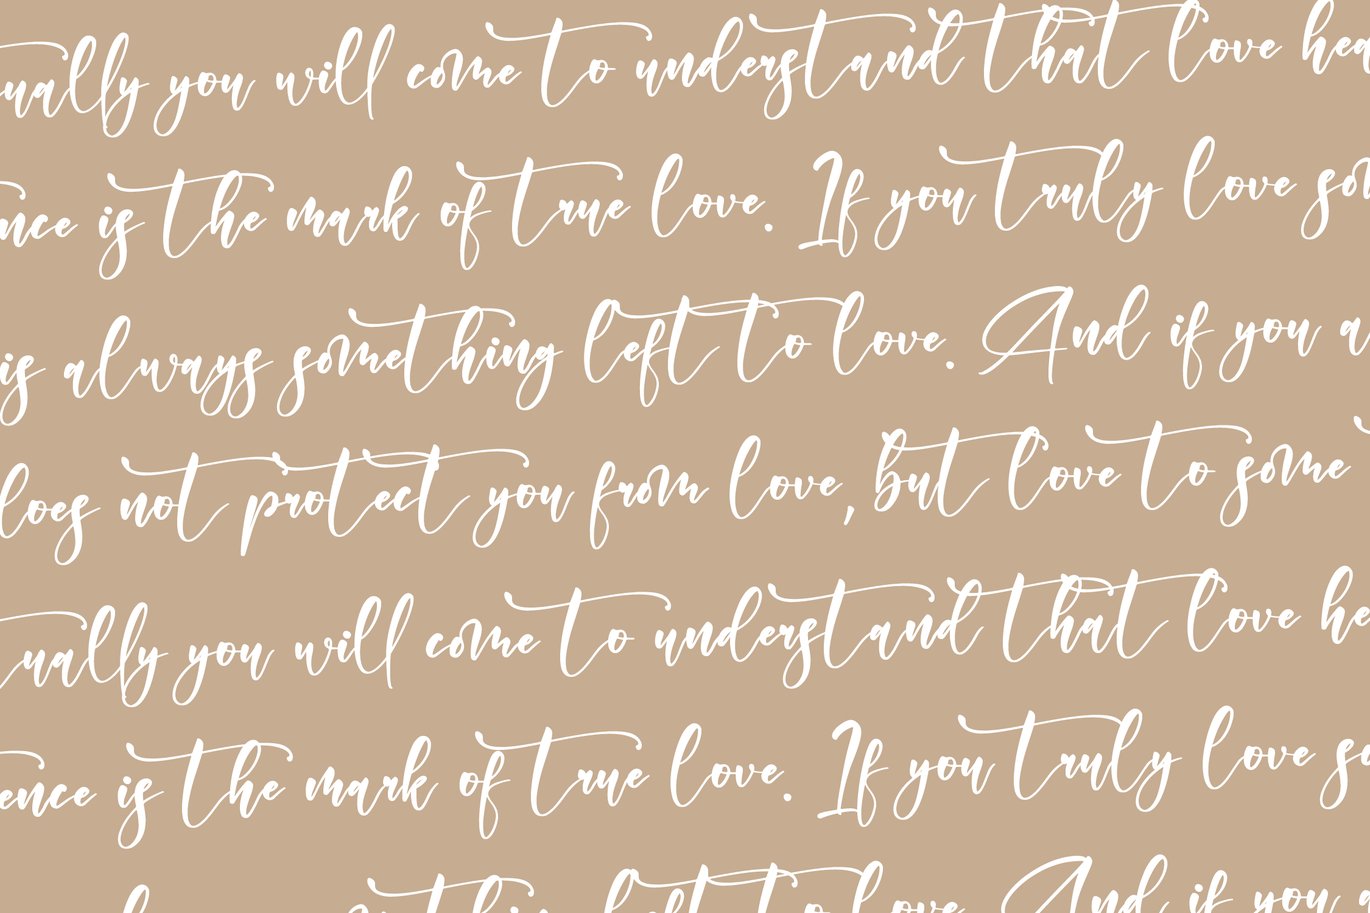 ually you will come to understand that love hea
nce is the mark of true love. If you truly love som
is always something left to love. And if you a
does not protect you from love, but love to some
ually you will come to understand that love he
ence is the mark of true love. If you truly love so
something left to love. And if you